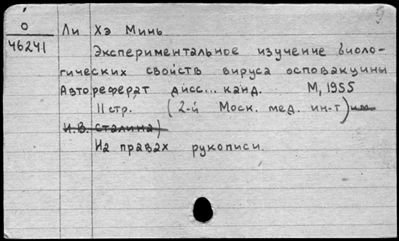 О
46241
Ли Хэ Минь
Экспериментальное изучение биоло-
гических свойств вируса осповакцины
Автореферат дисс... канд. М, 1955
11 стр. (2-й Моск. мед. ин-т) им.
И.В. Сталина)
На правах рукописи.